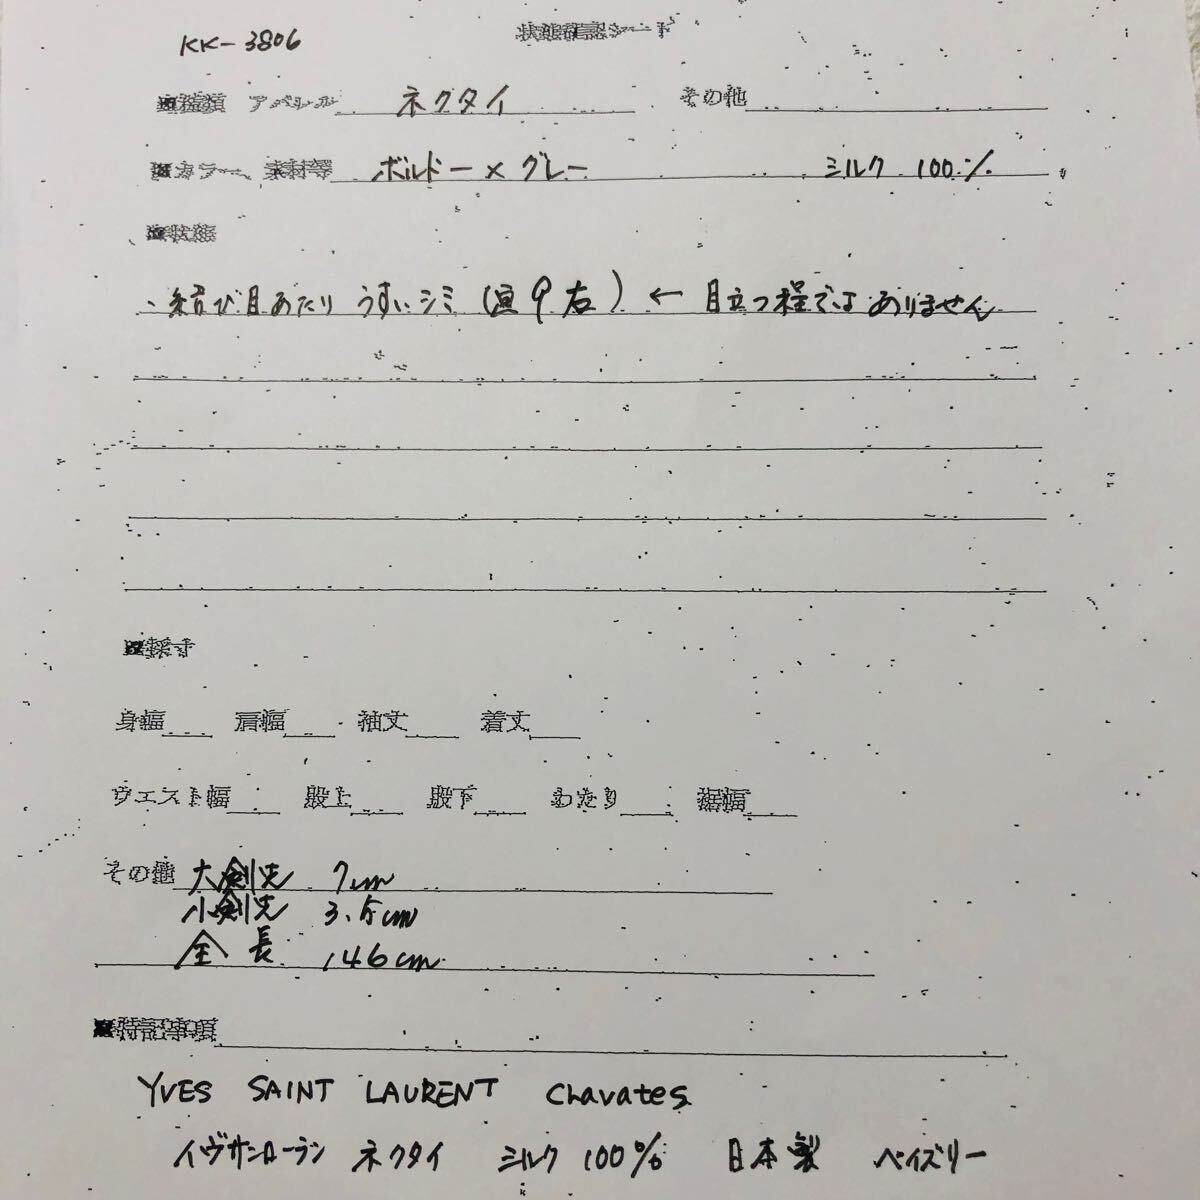 KK-3806
状態確認シート
■種類 アパレル ネクタイ その他
■カラー、素材等 ボルドー×グレー シルク 100%
■状態
・結び目あたり うすいシミ (画9右) ← 目立つ程ではありません
■採寸
身幅 肩幅 袖丈 着丈
ウエスト幅 股上 股下 わたり 裾幅
その他 大剣先 7cm
小剣先 3.5cm
全長 146cm
■特記事項
YVES SAINT LAURENT Chavates
イヴサンローラン ネクタイ シルク 100% 日本製 ペイズリー